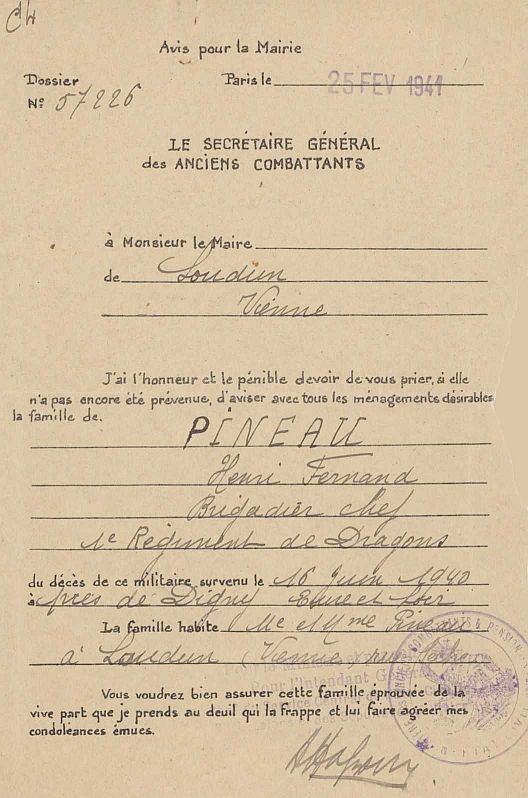 Avis pour la Mairie
Dossier Paris le 25 FEV 1941
N° 57226
LE SECRÉTAIRE GÉNÉRAL
des ANCIENS COMBATTANTS
à Monsieur le Maire
de Loudun
Vienne
J'ai l'honneur et le pénible devoir de vous prier, si elle
n'a pas encore été prévenue, d'aviser avec tous les ménagements désirables
la famille de.
PINEAU
Henri Fernand
Brigadier chef
1e Régiment de Dragons
du décès de ce militaire survenu le 16 Juin 1940
à près de Digny Eure et Loir
La famille habite Mr et Mme Pineau
à Loudun Vienne
Pour l'Intendant
Vous voudrez bien assurer cette famille éprouvée de la
vive part que je prends au deuil qui la frappe et lui faire agréer mes
condoléances émues.